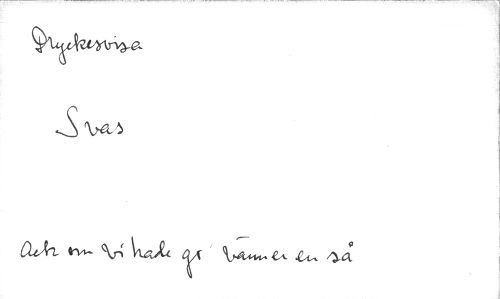 Dryckesvisa
Svas
Ack om vi hade go' vänner en så